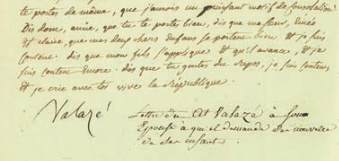 te portes de même, que j'aurois un puissant motif de consolation!
Dis donc, amie, que tu te portes bien, dis que ma sœur, Aimée
et claire, que mes deux chers enfans se portent bien et je suis
content. dis que mon fils s'applique et qu'il avance, et je
suis content encore. dès que tu goutes du repos, je suis content,
et je crie avec toi vive la République.
Valazé
Lettre du Cit Valazé à Son
Epouse à qui il demande des nouvelles
de ses enfants